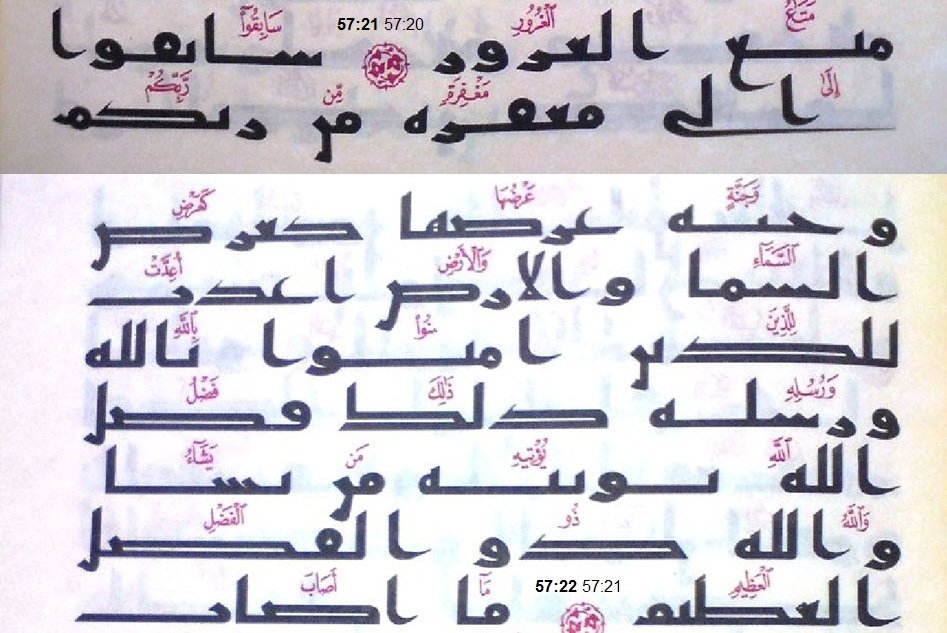 مَتَٰعُ ٱلْغُرُورِ 57:21 57:20 سَابِقُوٓا۟
متع الغرور سابقوا
إِلَىٰ مَغْفِرَةٍ مِّن رَّبِّكُمْ
الى مغفره من ربكم
وَجَنَّةٍ عَرْضُهَا كَعَرْضِ
و جنه عرضها كعرض
ٱلسَّمَآءِ وَٱلْأَرْضِ أُعِدَّتْ
السما والارض اعدت
لِلَّذِينَ ءَامَنُوا۟ بِٱللَّهِ
للذين امنوا بالله
وَرُسُلِهِۦ ذَٰلِكَ فَضْلُ
ورسله ذلك فضل
ٱللَّهِ يُؤْتِيهِ مَن يَشَآءُ
الله يوتيه من يشا
وَٱللَّهُ ذُو ٱلْفَضْلِ
والله ذو الفضل
ٱلْعَظِيمِ 57:22 57:21 مَآ أَصَابَ
العظيم ما اصاب